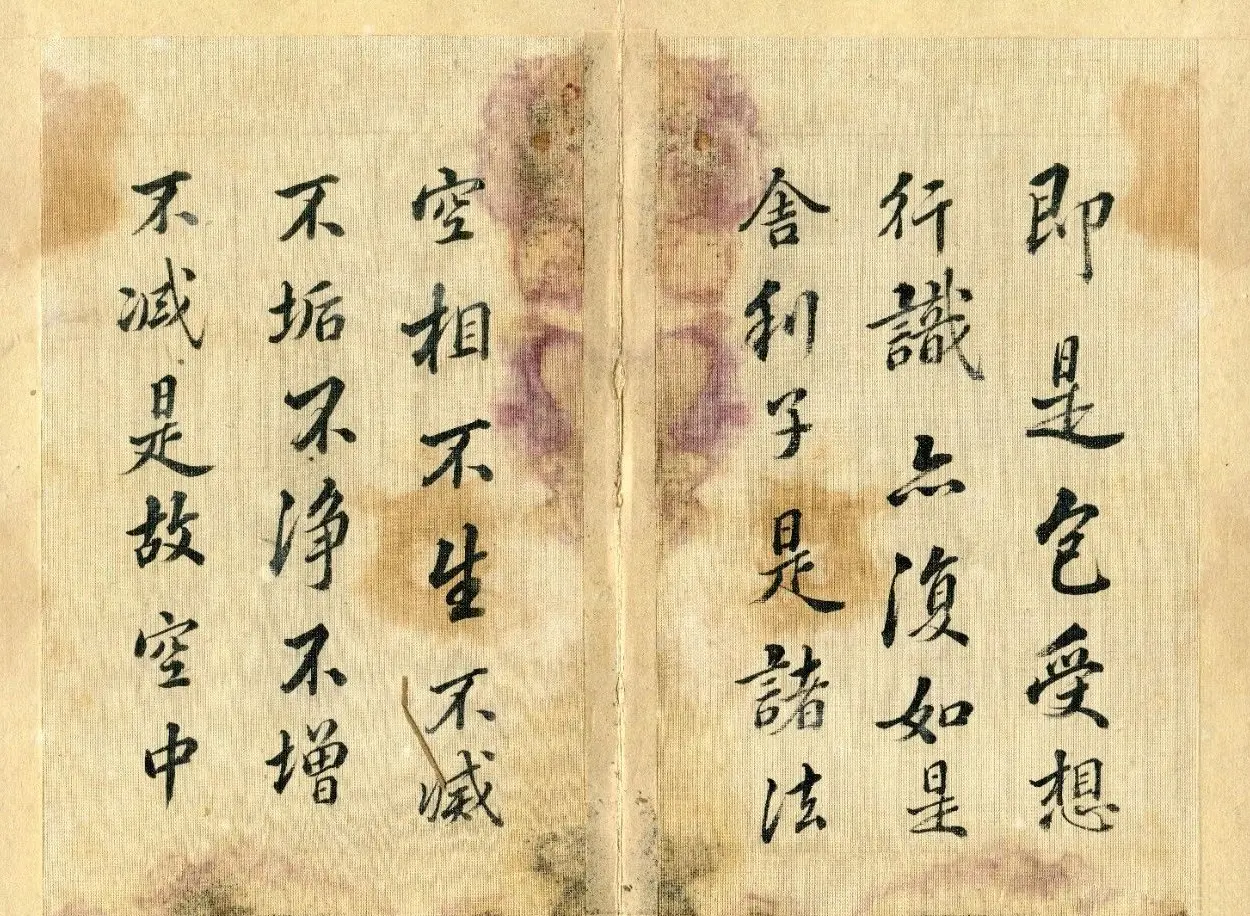 即是色受想
行識亦復如是
舍利子是諸法
空相不生不滅
不垢不净不增
不减是故空中